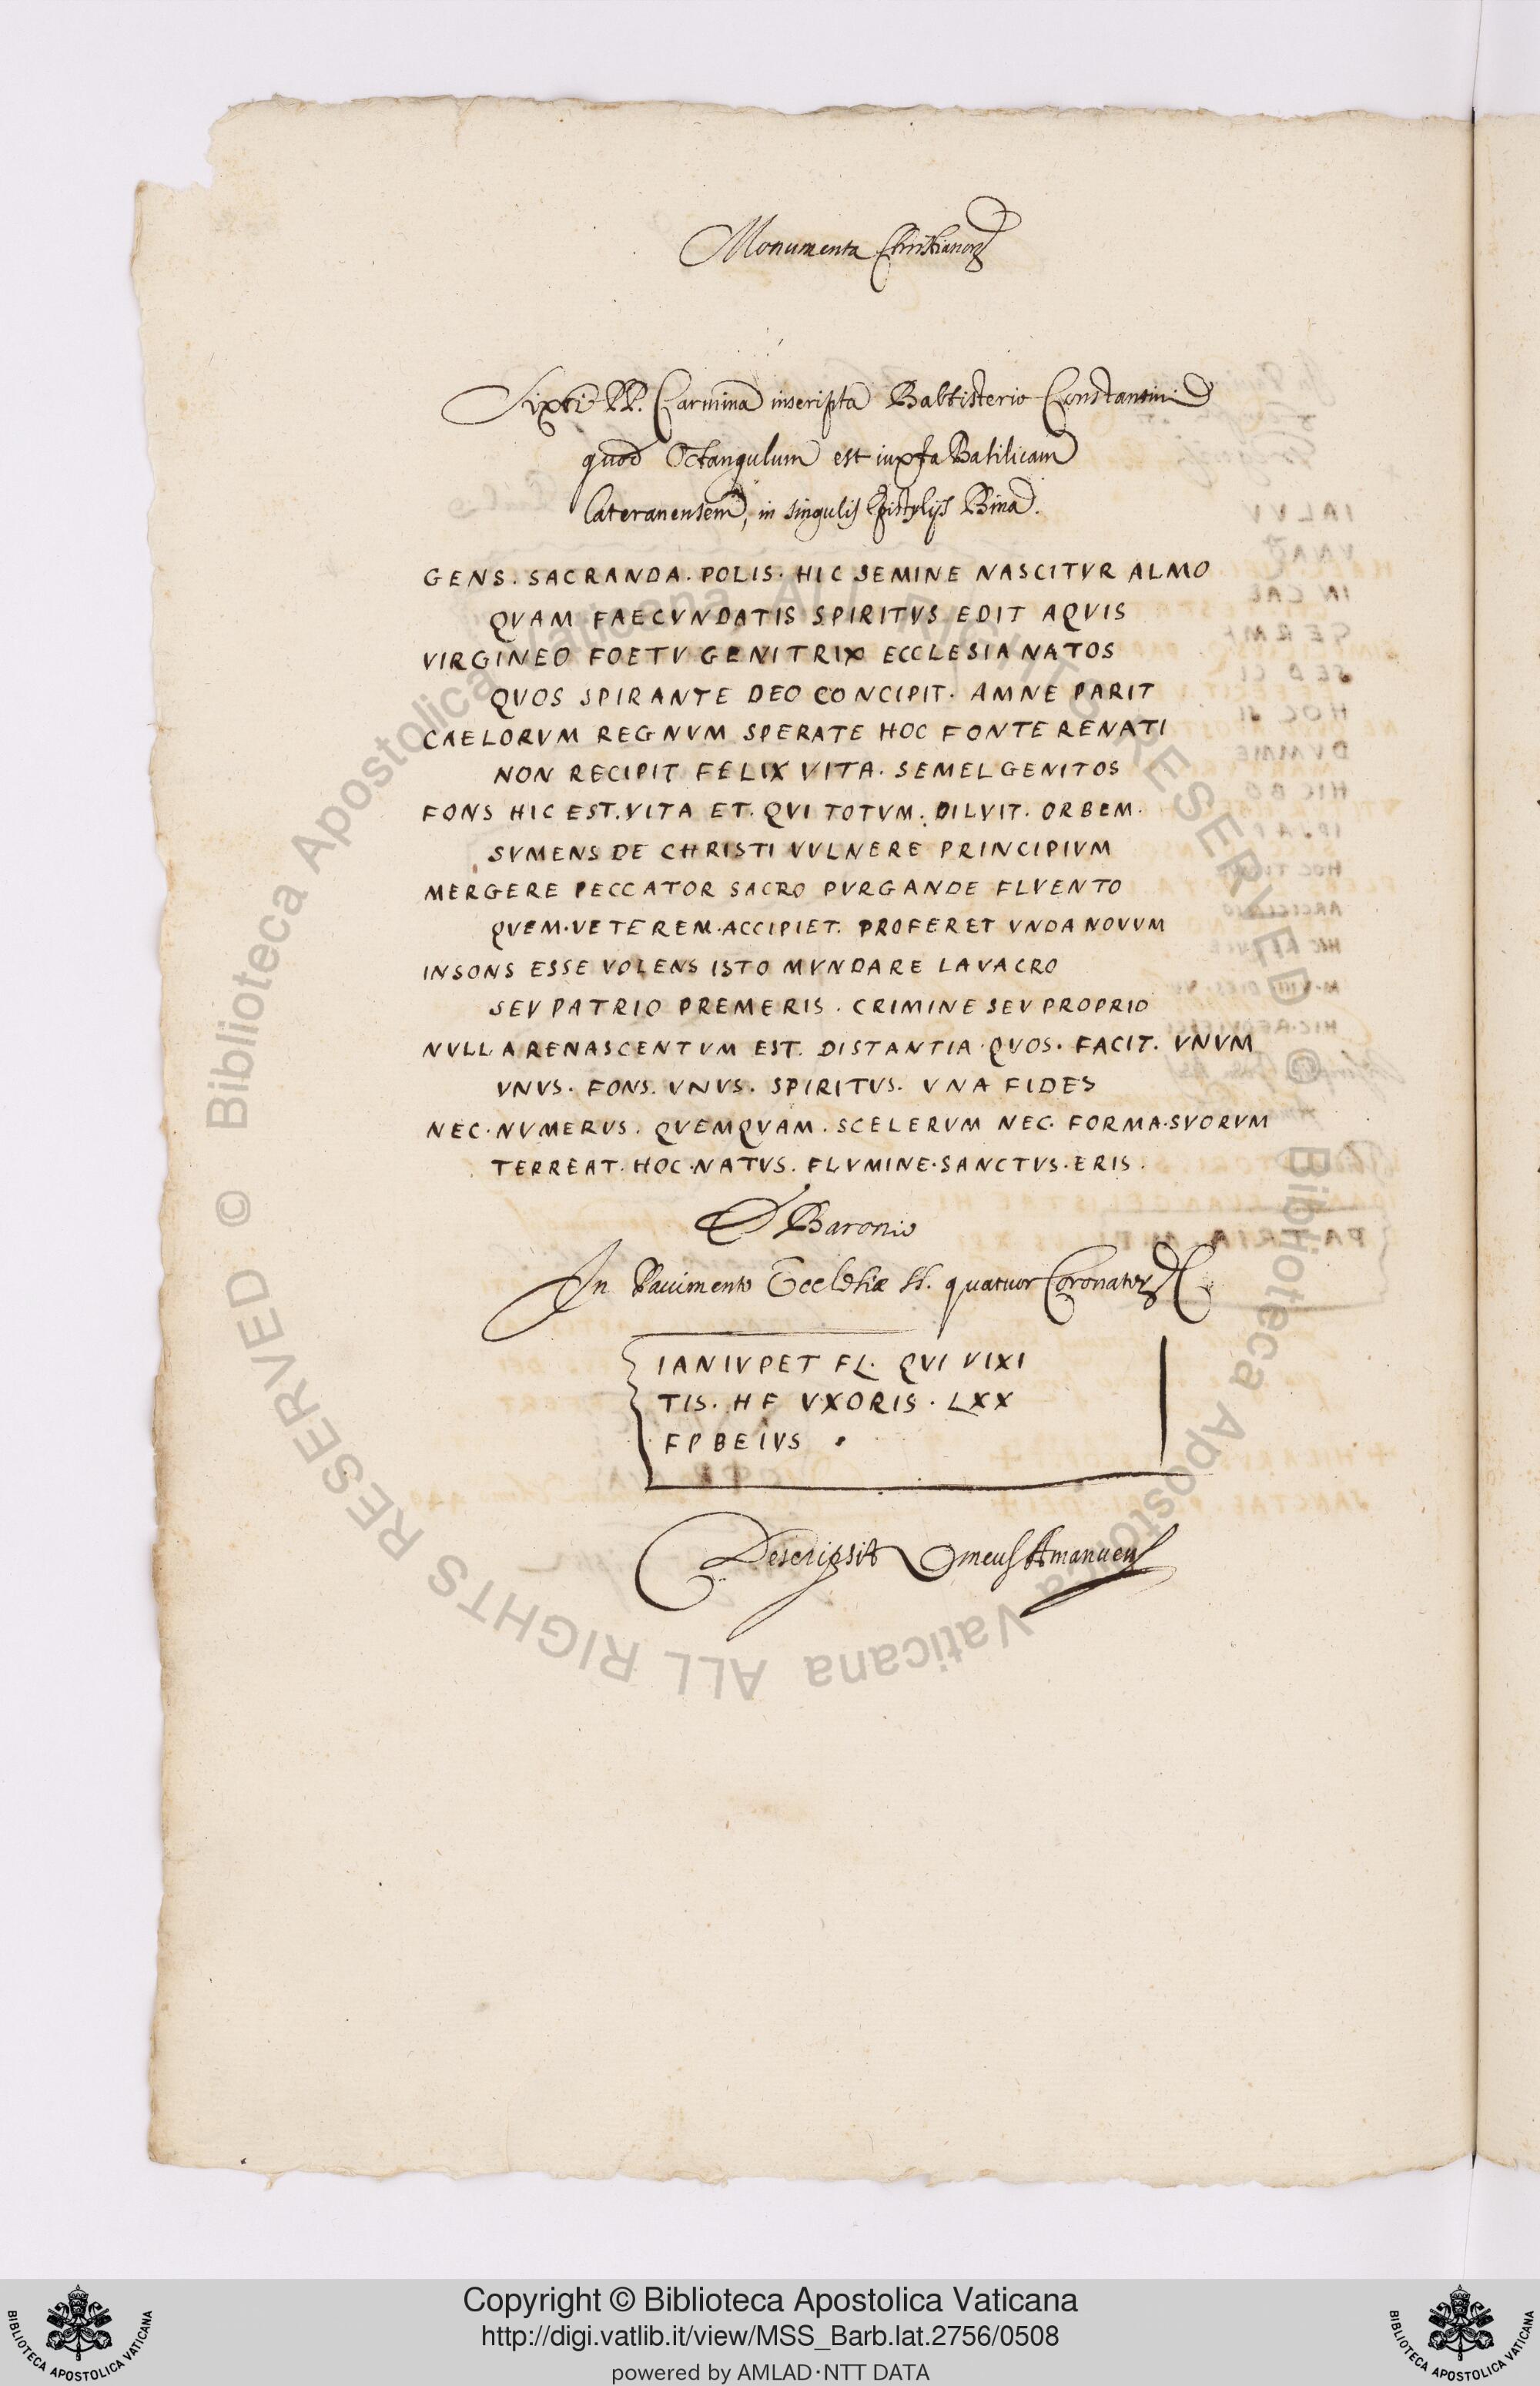 Monumenta Christianorꝝ
Sixti PP. Carmina inscripta Babtisterio Constantini
quod Octangulum est iuxta Basilicam
Lateranensem, in singulis Epistylijs Bina.
GENS. SACRANDA. POLIS. HIC SEMINE NASCITVR ALMO
QVAM FAECVNDATIS SPIRITVS EDIT AQVIS
VIRGINEO FOETV GENITRIX ECCLESIA NATOS
QVOS SPIRANTE DEO CONCIPIT. AMNE PARIT
CAELORVM REGNVM SPERATE HOC FONTE RENATI
NON RECIPIT FELIX VITA. SEMEL GENITOS
FONS HIC EST. VITA ET. QVI TOTVM. DILVIT. ORBEM.
SVMENS DE CHRISTI VVLNERE PRINCIPIVM
MERGERE PECCATOR SACRO PVRGANDE FLVENTO
QVEM. VETEREM. ACCIPIET. PROFERET VNDA NOVVM
INSONS ESSE VOLENS ISTO MVNDARE LAVACRO
SEV PATRIO PREMERIS. CRIMINE SEV PROPRIO
NVLLA RENASCENTVM EST. DISTANTIA. QVOS. FACIT. VNVM
VNVS. FONS. VNVS. SPIRITVS. VNA FIDES
NEC. NVMERVS. QVEMQVAM. SCELERVM NEC. FORMA. SVORVM
TERREAT. HOC. NATVS. FLVMINE. SANCTVS. ERIS.
Baronio
In Pauimento Ecclesiæ SS. quatuor Coronatorꝝ
IANIVPET FL. QVI VIXI
TIS. HF VXORIS. LXX
FPBEIVS
Descripsit meus Amanuen
© Biblioteca Apostolica Vaticana ALL RIGHTS RESERVED
© Biblioteca Apostolica Vaticana ALL RIGHTS RESERVED
BIBLIOTECA APOSTOLICA VATICANA
Copyright © Biblioteca Apostolica Vaticana
http://digi.vatlib.it/view/MSS_Barb.lat.2756/0508
powered by AMLAD·NTT DATA
BIBLIOTECA APOSTOLICA VATICANA